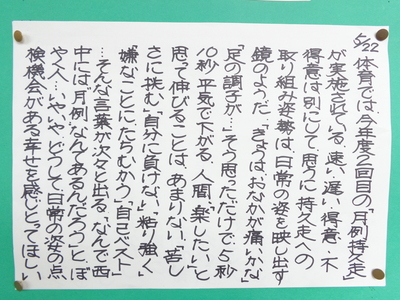 5/22 体育では、今年度2回目の「月例持久走」
が実施されている。速い、遅い、得意・不
得意は別にして、思うに持久走への
取り組み姿勢は、日常の姿を映し出す
鏡のようだ。「きょうはおなかが痛いかな」
「足の調子が…」そう思っただけで、5秒
10秒平気で下がる。人間「楽したい」と
思って伸びることは、あまりない。「苦し
さに挑む」「自分に負けない」「粘り強く」
「嫌なことに、たちむかう」「自己ベスト」
…そんな言葉が次々と出る。なんで西
中には、「月例」なんてあるんだろう」と、ぼ
やく人…いやいやどうして、日常の姿の点
検機会がある幸せを感じとってほしい